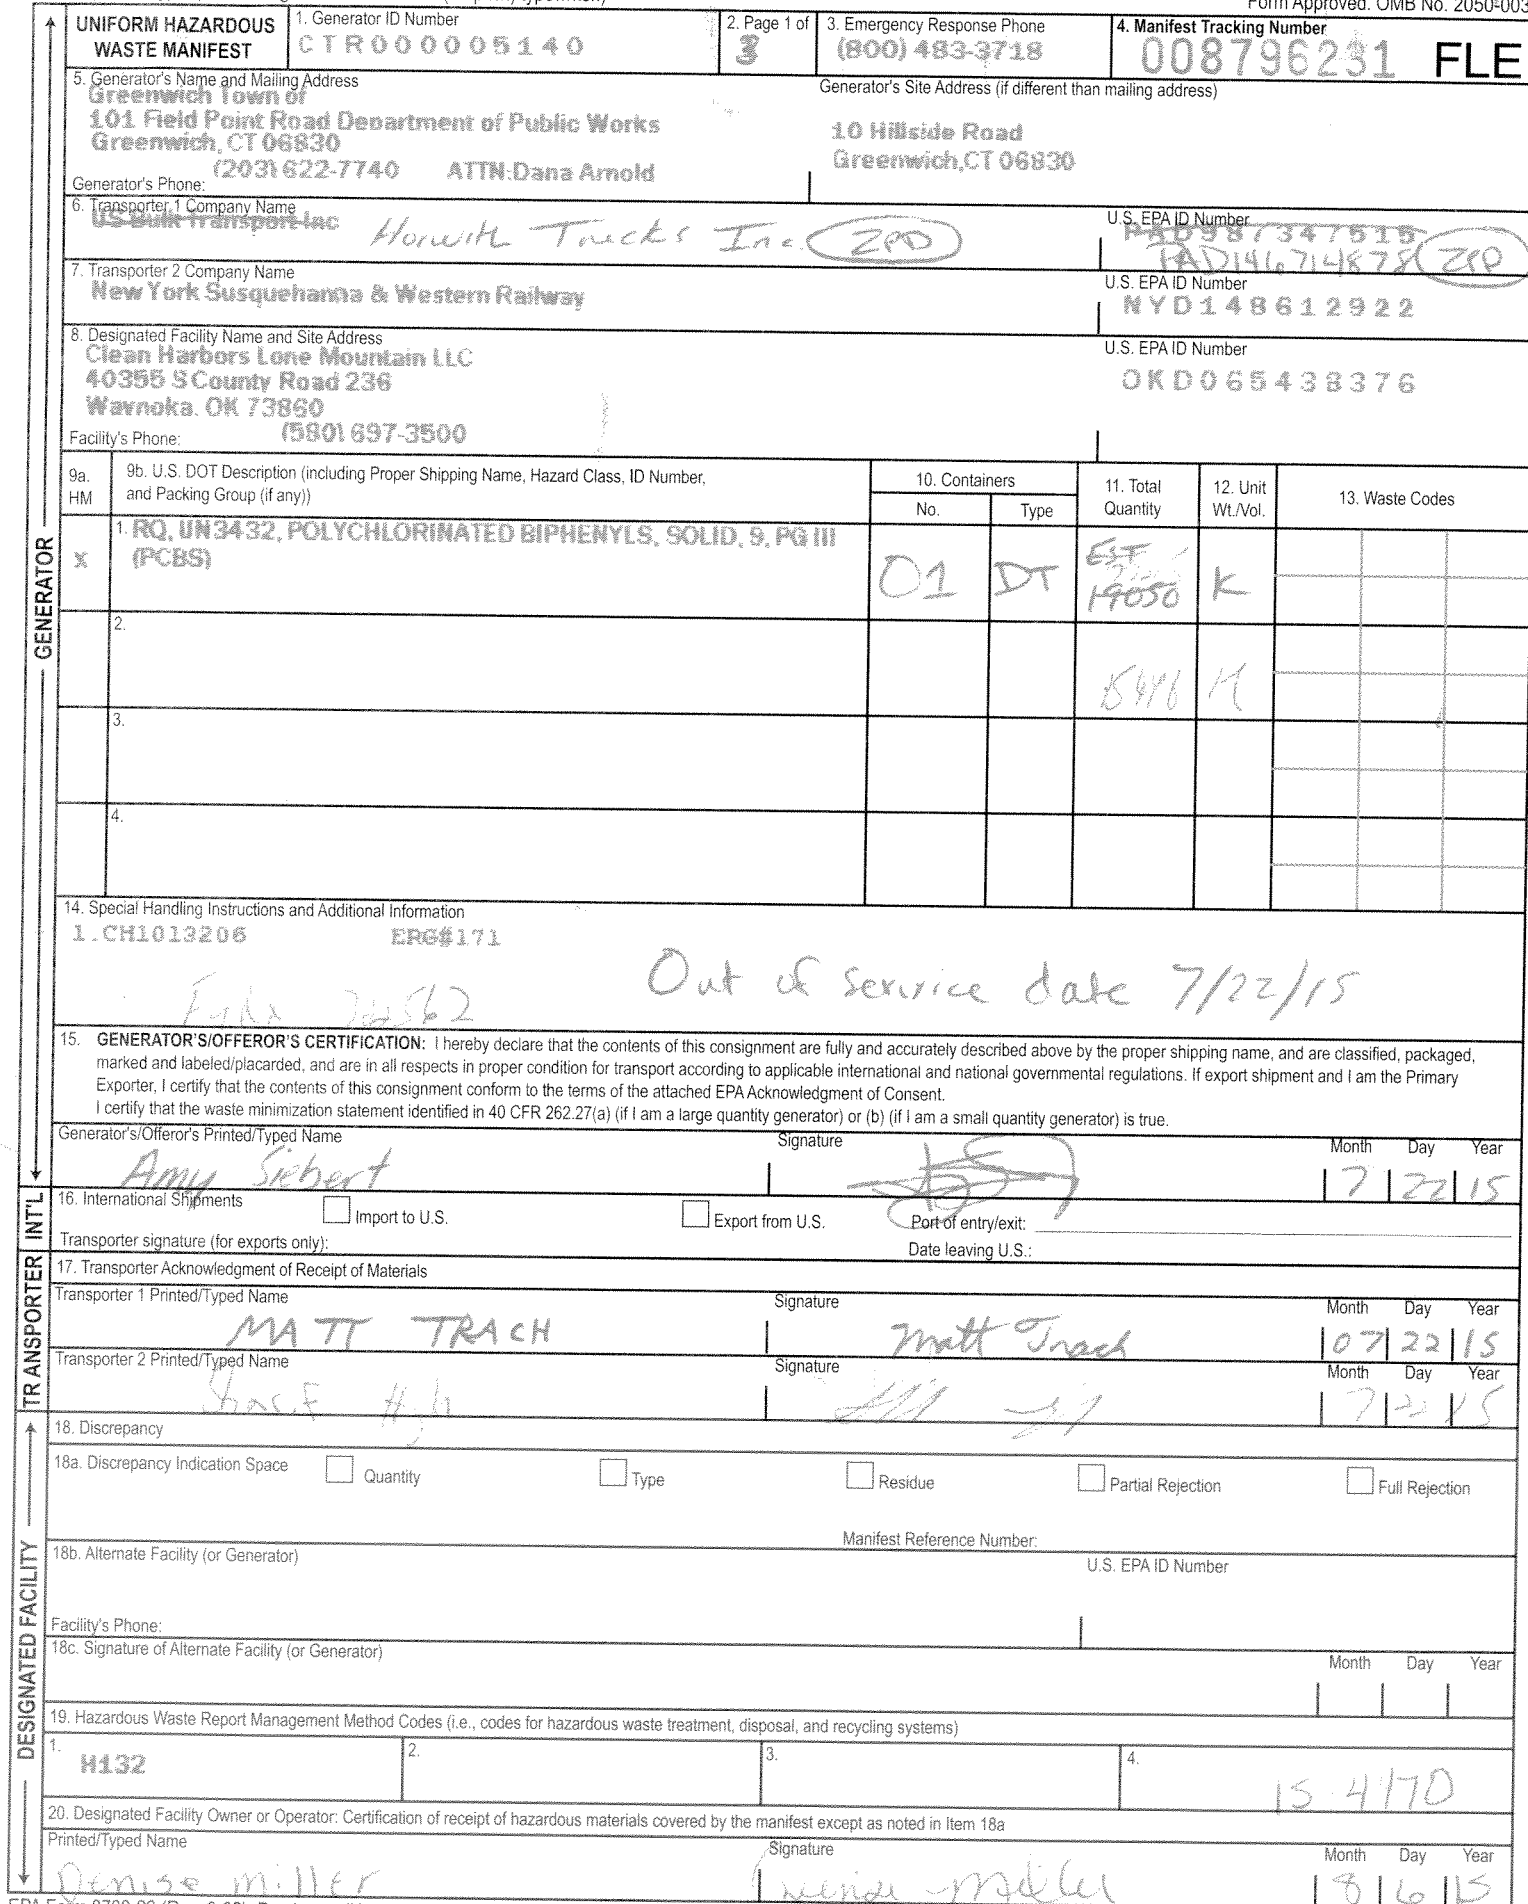 Form Approved. OMB No. 2050-003
UNIFORM HAZARDOUS WASTE MANIFEST
1. Generator ID Number
CTR000005140
2. Page 1 of
3
3. Emergency Response Phone
(800) 483-3718
4. Manifest Tracking Number
008796231 FLE
5. Generator's Name and Mailing Address
Greenwich Town of
101 Field Point Road Department of Public Works
Greenwich, CT 06830
(203) 622-7740 ATTN:Dana Arnold
Generator's Phone:
Generator's Site Address (if different than mailing address)
10 Hillside Road
Greenwich,CT 06830
6. Transporter 1 Company Name
US Bulk Transport Inc
Horwith Trucks Inc. ZPD
U.S. EPA ID Number
PAD987347515
PAD146714878 ZPD
7. Transporter 2 Company Name
New York Susquehanna & Western Railway
U.S. EPA ID Number
NYD148612922
8. Designated Facility Name and Site Address
Clean Harbors Lone Mountain LLC
40355 S County Road 236
Waynoka. OK 73860
(580) 697-3500
Facility's Phone:
U.S. EPA ID Number
OKD065438376
9a. HM
9b. U.S. DOT Description (including Proper Shipping Name, Hazard Class, ID Number,
and Packing Group (if any))
10. Containers
No.
Type
11. Total Quantity
12. Unit Wt./Vol.
13. Waste Codes
X
1. RQ, UN3432, POLYCHLORINATED BIPHENYLS, SOLID, 9, PG III
(PCBS)
01 DT
EST
19050
K
2.
3.
4.
14. Special Handling Instructions and Additional Information
1.CH1013206 ERG#171
Out of service date 7/22/15
15. GENERATOR'S/OFFEROR'S CERTIFICATION: I hereby declare that the contents of this consignment are fully and accurately described above by the proper shipping name, and are classified, packaged,
marked and labeled/placarded, and are in all respects in proper condition for transport according to applicable international and national governmental regulations. If export shipment and I am the Primary
Exporter, I certify that the contents of this consignment conform to the terms of the attached EPA Acknowledgment of Consent.
I certify that the waste minimization statement identified in 40 CFR 262.27(a) (if I am a large quantity generator) or (b) (if I am a small quantity generator) is true.
Generator's/Offeror's Printed/Typed Name
Amy Siebert
Signature
Month Day Year
7 22 15
16. International Shipments
Import to U.S.
Export from U.S.
Port of entry/exit:
Transporter signature (for exports only):
Date leaving U.S.:
17. Transporter Acknowledgment of Receipt of Materials
Transporter 1 Printed/Typed Name
MATT TRACH
Signature
Matt Trach
Month Day Year
07 22 15
Transporter 2 Printed/Typed Name
Signature
Month Day Year
7 22 15
18. Discrepancy
18a. Discrepancy Indication Space
Quantity
Type
Residue
Partial Rejection
Full Rejection
Manifest Reference Number:
18b. Alternate Facility (or Generator)
U.S. EPA ID Number
Facility's Phone:
18c. Signature of Alternate Facility (or Generator)
Month Day Year
19. Hazardous Waste Report Management Method Codes (i.e., codes for hazardous waste treatment, disposal, and recycling systems)
1. H132
2.
3.
4.
15.4170
20. Designated Facility Owner or Operator: Certification of receipt of hazardous materials covered by the manifest except as noted in Item 18a
Printed/Typed Name
Denise Miller
Signature
Month Day Year
8 6 15
GENERATOR
INT'L
TRANSPORTER
DESIGNATED FACILITY